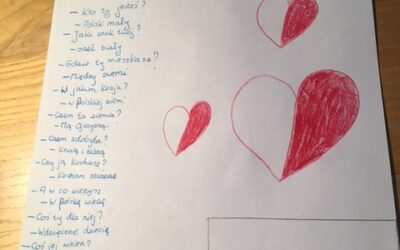 – Kto ty jesteś?
– Polak mały
– Jaki znak twój?
– orzeł biały
– Gdzie ty mieszkasz?
– Między swemi
– W jakim kraju?
– w polskiej ziemi
– Czem ta ziemia?
– Mą Ojczyzną
– Czem zdobyta?
– Krwią i blizną
– Czy ją kochasz?
– Kocham szczerze
– A w co wierzysz
– W Polskę wierzę
– Coś ty dla niej?
– Wdzięczne dziecię
– Coś jej winien?